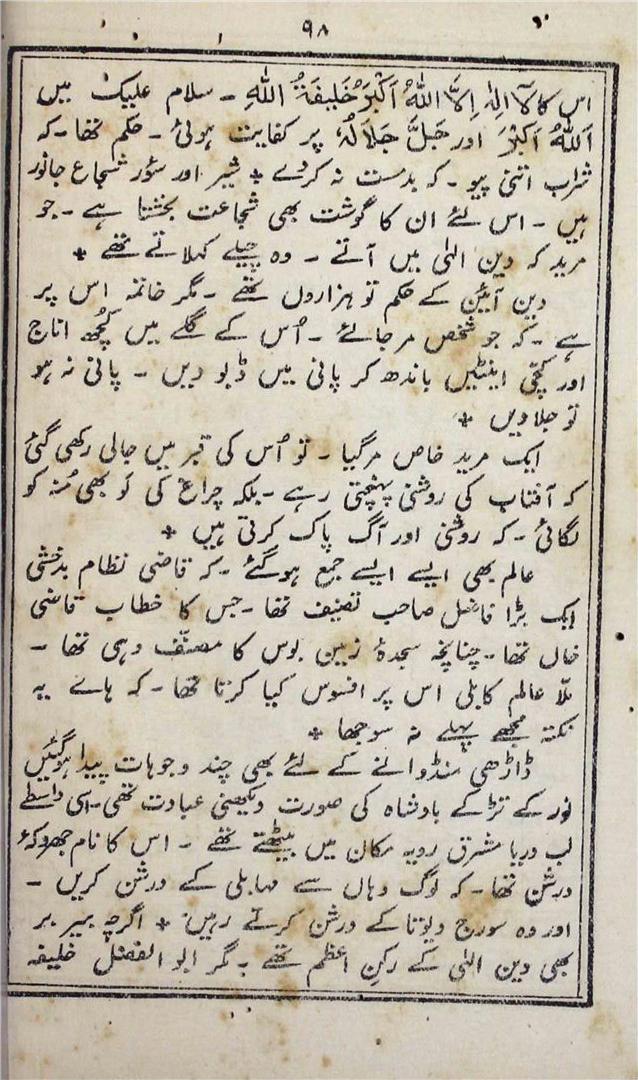 ۹۸
اس کا لَآ اِلٰہَ اِلَّا اللّٰہُ اَکْبَرُ خَلِیفَۃُ اللّٰہِ ۔ سلام علیک میں
اَللّٰہُ اَکْبَرْ اور جَلَّ جَلَالُہٗ پر کفایت ہوئی ۔ حکم تھا ۔ کہ
شراب اتنی پیو ۔ کہ بدمست نہ کردے * شیر اور سؤر شجاع جانور
ہیں ۔ اس لئے ان کا گوشت بھی شجاعت بخشتا ہے ۔ جو
مرید کہ دین الٰہی میں آتے ۔ وہ چیلے کہلاتے تھے *
دین آئین کے حکم تو ہزاروں تھے ۔ مگر خاتمہ اس پر
ہے ۔ کہ جو شخص مرجائے ۔ اُس کے گلے میں کُچھ اناج
اور کچّی اینٹیں باندھ کر پانی میں ڈبو دیں ۔ پانی نہ ہو
تو جلا دیں *
ایک مرید خاص مرگیا ۔ تو اُس کی قبر میں جالی رکھی گئی
کہ آفتاب کی روشنی پہنچتی رہے ۔ بلکہ چراغ کی لَو بھی مُنہ کو
لگائی ۔ کہ روشنی اور آگ پاک کرتی ہیں *
عالم بھی ایسے ایسے جمع ہوگئے ۔ کہ قاضی نظام بدخشی
ایک بڑا فاضل صاحب تصنیف تھا ۔ جس کا خطاب قاضی
خاں تھا ۔ چنانچہ سجدۂ زمین بوس کا مصنّف وہی تھا ۔
ملّا عالم کابلی اس پر افسوس کیا کرتا تھا ۔ کہ ہاے یہ
نکتہ مجھے پہلے نہ سوجھا *
ڈاڑھی منڈوانے کے لئے بھی چند وجوہات پیدا ہوگئیں
نور کے تڑکے بادشاہ کی صورت دیکھنی عبادت تھی ۔ اسی واسطے
لب دریا مشرق رویہ مکان میں بیٹھتے تھے ۔ اس کا نام جھروکۂ
درشن تھا ۔ کہ لوگ وہاں سے مہابلی کے درشن کریں ۔
اور وہ سورج دیوتا کے درشن کرتے رہیں * اگرچہ بیر بر
بھی دین الٰہی کے رکنِ اعظم تھے ۔ مگر ابو الفضل خلیفہ